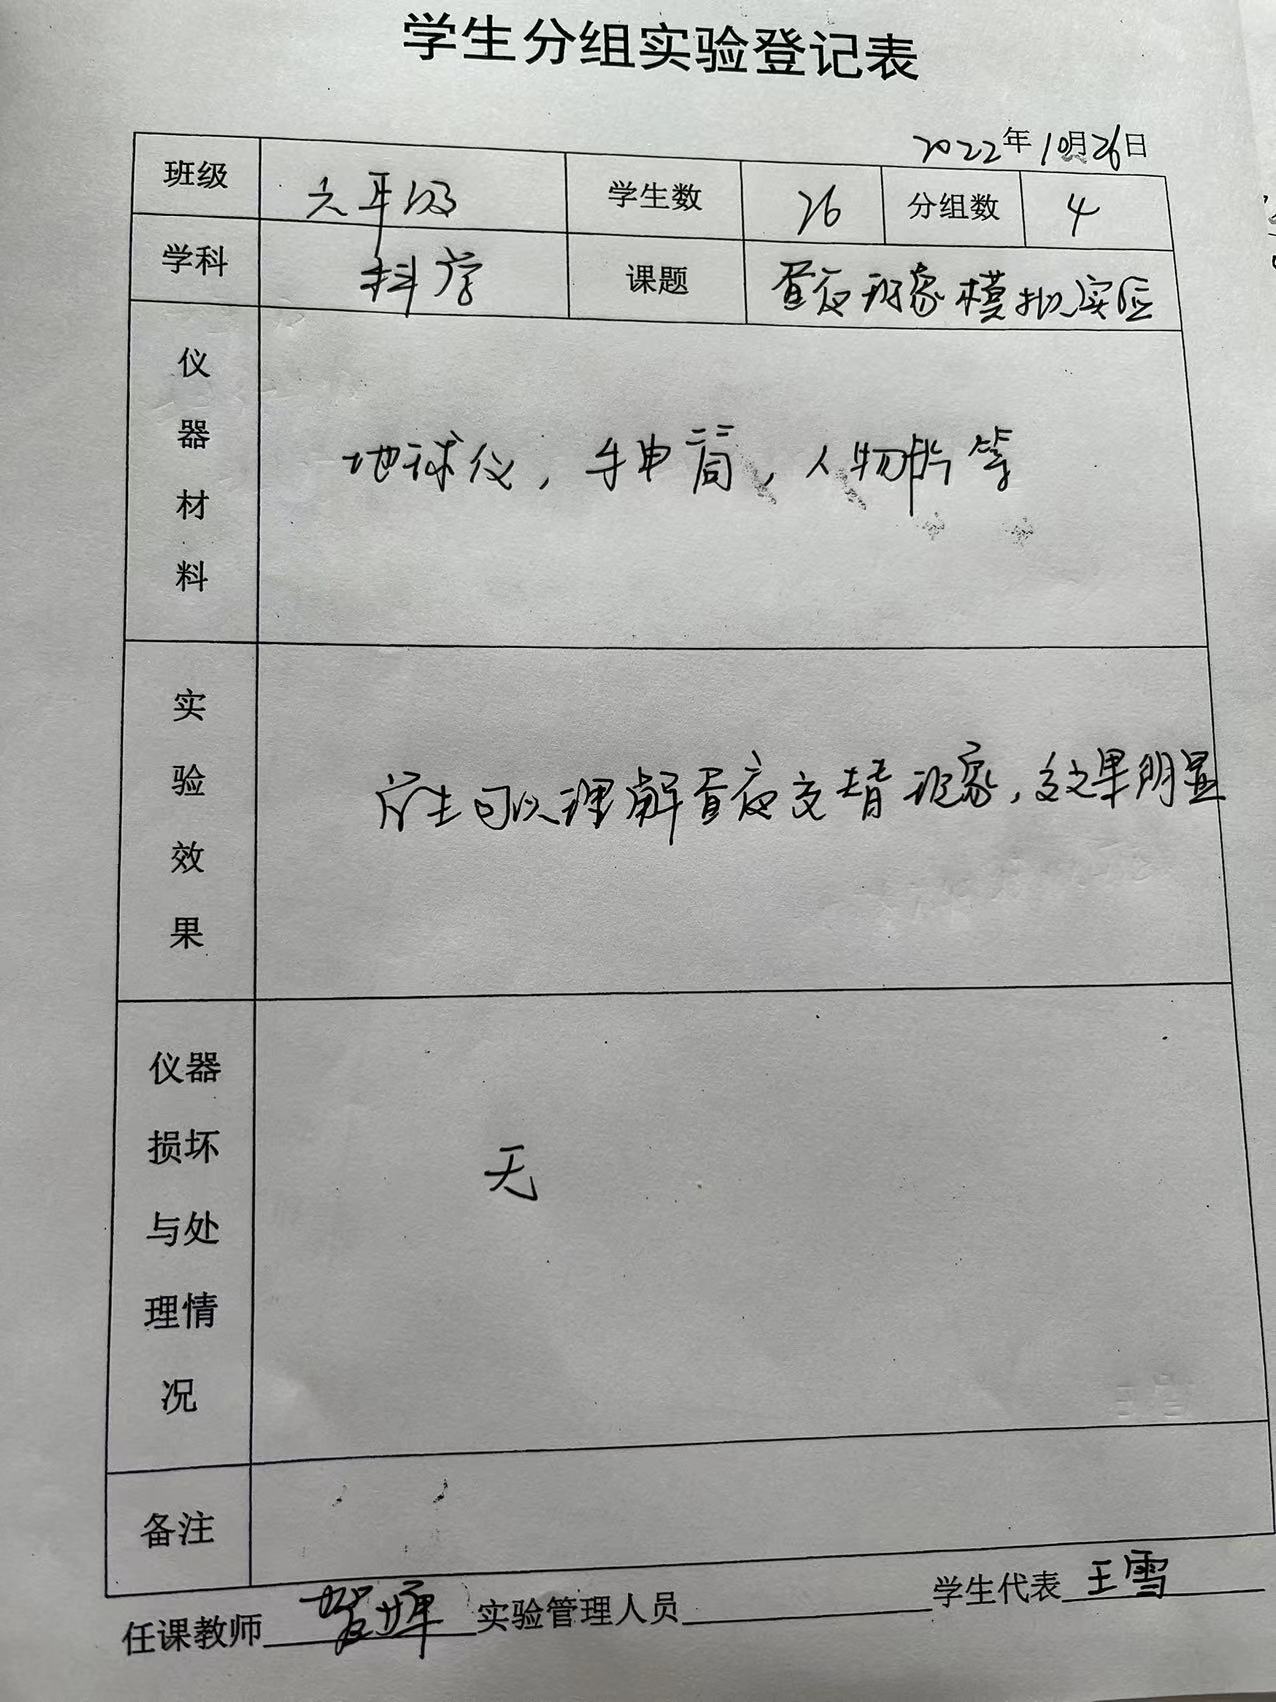 学生分组实验登记表
2022年10月26日
班级 六年级 学生数 26 分组数 4
学科 科学 课题 昼夜现象模拟实验
仪器材料 地球仪，手电筒，人物片等
实验效果 学生可以理解昼夜交替现象，效果明显
仪器损坏与处理情况 无
备注
任课教师 贺 实验管理人员 学生代表 王雪